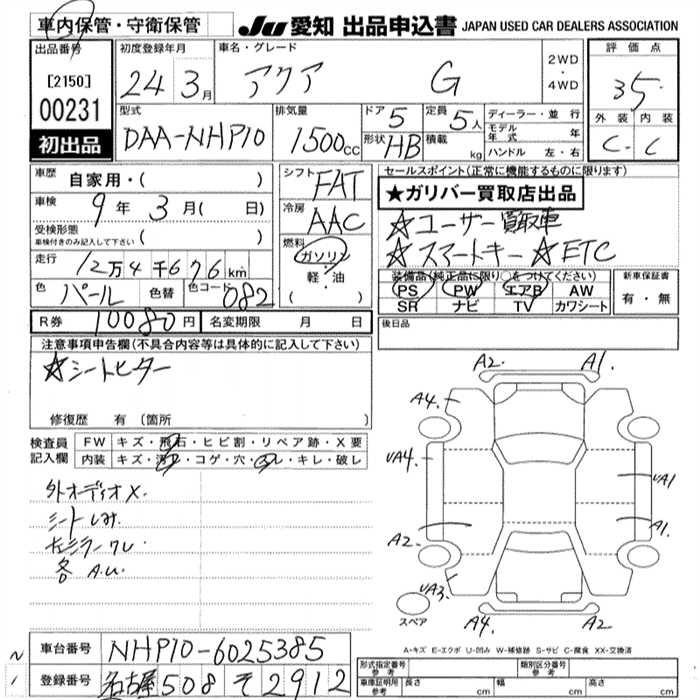 車内保管・守衛保管 JU 愛知 出品申込書 JAPAN USED CAR DEALERS ASSOCIATION
出品番号 初度登録年月 車名・グレード 評価点
[2150] 24 3月 アクア G 2WD ・ 4WD 3.5
00231 型式 排気量 ドア 5 定員 5人 ディーラー・並行 外装 内装
初出品 DAA-NHP10 1500cc 形状 HB 積載 kg モデル年式 年 C- C
ハンドル 左・右
車歴 自家用・( ) シフト FAT セールスポイント(正常に機能するものに限ります)
車検 9年 3月( 日) 冷房 AAC ★ガリバー買取店出品
受検形態 ( ) ☆ユーザー買取車
車検付きのみ記入して下さい 燃料 ☆スマートキー ☆ETC
走行 12万4千676km ガソリン
軽・油 装備品(純正品に限り○をつけてください) 新車保証書
色 パール 色替 色コード 082 ( ) PS PW エアB AW 有・無
SR ナビ TV カワシート
R券 10080円 名変期限 月 日 後日品
注意事項申告欄(不具合内容等は具体的に記入して下さい)
☆シートヒーター
修復歴 有 (箇所 )
検査員 FW キズ・飛石・ヒビ割・リペア跡・X要
記入欄 内装 キズ・汚れ・コゲ・穴・スレ・キレ・破レ
外オーディオX.
シートしみ.
左ミラーワレ.
各 A.U.
A2. A1.
A4.
UA4. UA1
A2. A1.
UA3.
スペア A4. A2
A-キズ E-エクボ U-凹み W-補修跡 S-サビ C-腐食 XX-交換済
車台番号 NHP10-6025385
登録番号 名古屋 508 そ 2912
形式指定番号 参考 類別区分番号 参考
車庫証明用 参考 長さ cm 幅 cm 高さ cm